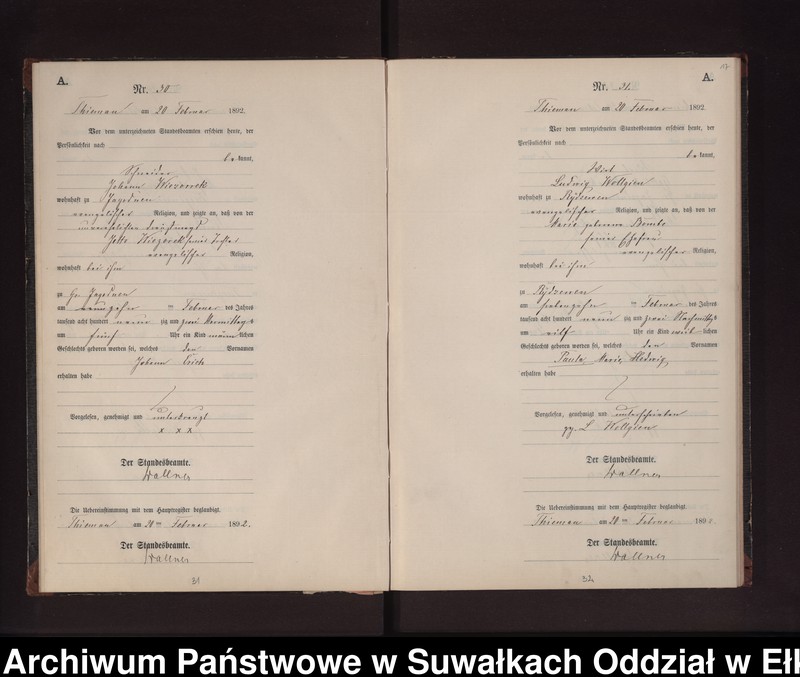 A.
Nr. 30
Thiemau am 20 Februar 1892.
Vor dem unterzeichneten Standesbeamten erschien heute, der
Persönlichkeit nach
be kannt,
Schneider
Johann Wiezoreck
wohnhaft zu Jagodnen
evangelischer Religion, und zeigte an, daß von der
unverehelichten
Wiezoreck seiner Tochter
evangelischer Religion,
wohnhaft bei ihm
zu Gr. Jagodnen
am neunzehn ten Februar des Jahres
tausend acht hundert neun zig und zwei Vormittags
um fünf Uhr ein Kind männ lichen
Geschlechts geboren worden sei, welches den Vornamen
Johann Erich
erhalten habe
Vorgelesen, genehmigt und unterkreuzt
x x x
Der Standesbeamte.
Wallner
Die Uebereinstimmung mit dem Hauptregister beglaubigt.
Thiemau am 20 ten Februar 1892.
Der Standesbeamte.
Wallner
31
17
A.
Nr. 31.
Thiemau am 20 Februar 1892
Vor dem unterzeichneten Standesbeamten erschien heute, der
Persönlichkeit nach
be kannt,
Wirt
Ludwig Wellgien
wohnhaft zu Rydzewen
evangelischer Religion, und zeigte an, daß von der
Marie geborene Bembo
seiner Ehefrau
evangelischer Religion,
wohnhaft bei ihm
zu Rydzewen
am siebenzehn ten Februar des Jahres
tausend acht hundert neun zig und zwei Nachmittags
um eilf Uhr ein Kind weib lichen
Geschlechts geboren worden sei, welches den Vornamen
Paula Marie Hedwig
erhalten habe
Vorgelesen, genehmigt und unterschrieben
gz. L Wellgien
Der Standesbeamte.
Wallner
Die Uebereinstimmung mit dem Hauptregister beglaubigt.
Thiemau am 20 ten Februar 1892.
Der Standesbeamte.
Wallner
32
Archiwum Państwowe w Suwałkach Oddział w Ełk